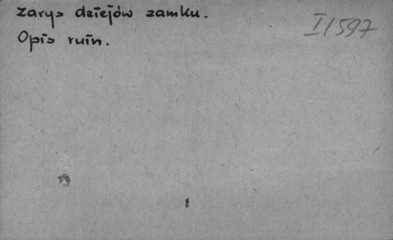 zarys dziejów zamku.
I/597
Opis ruin.